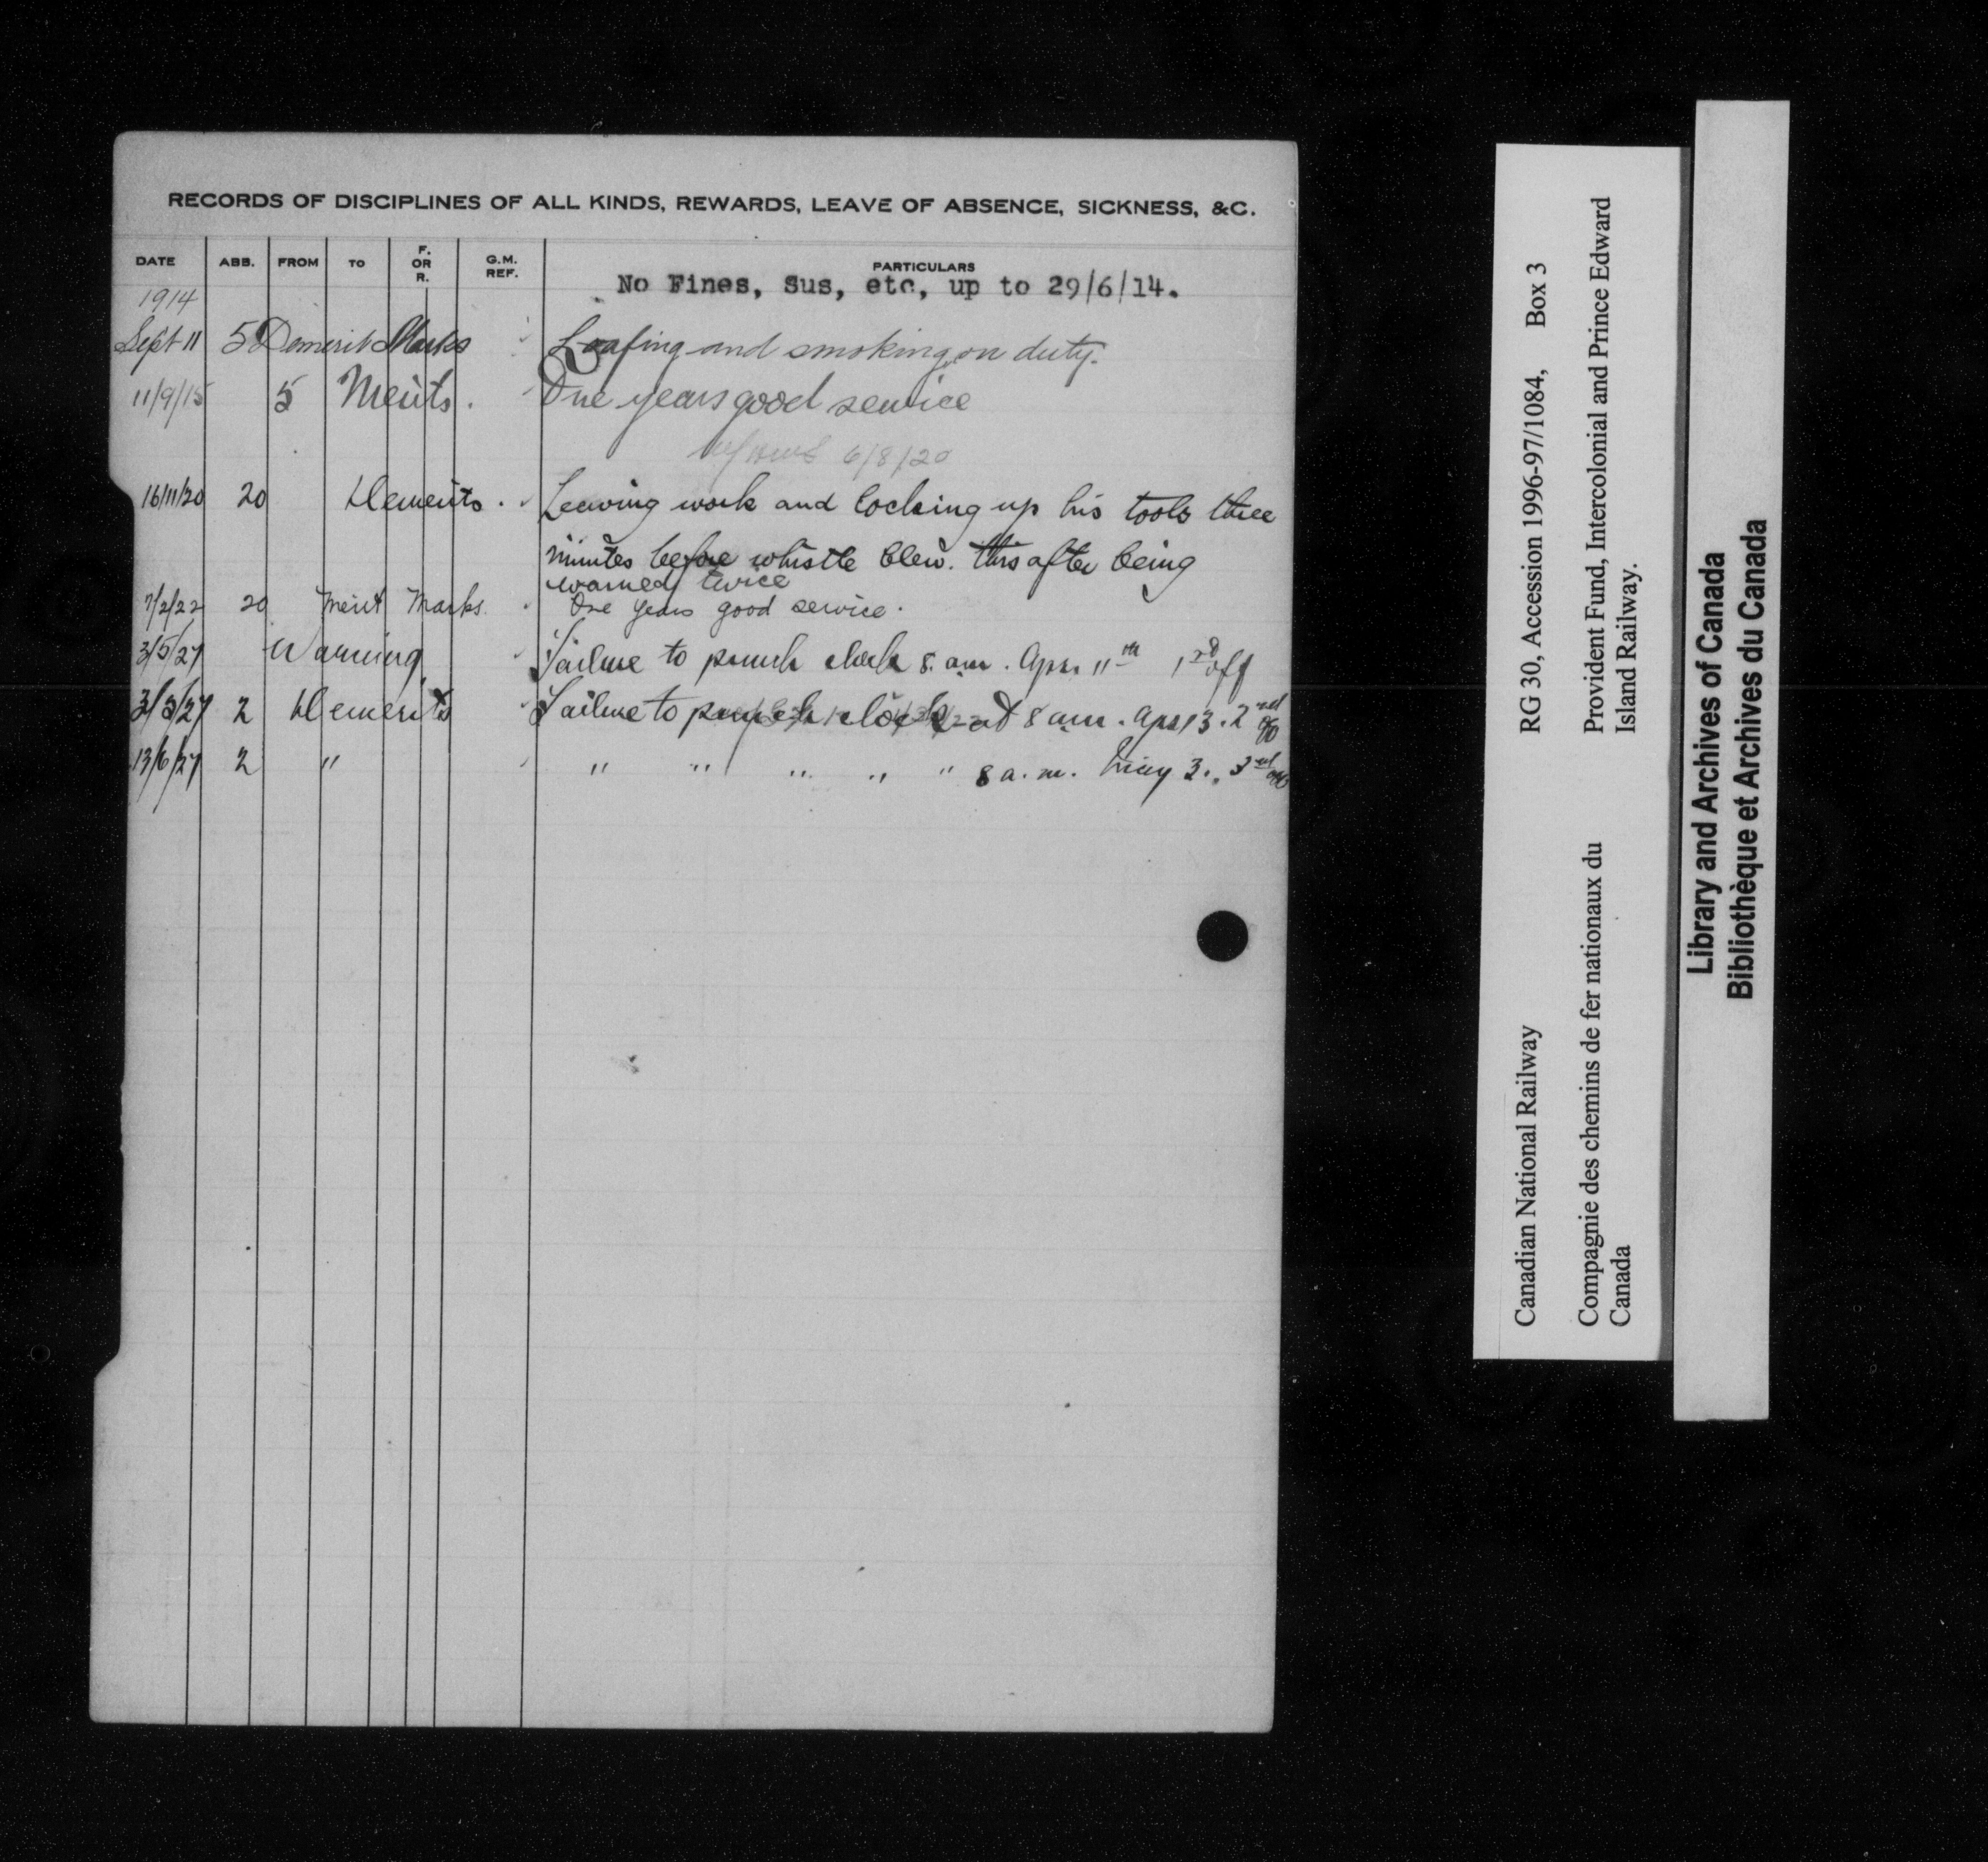 RECORDS OF DISCIPLINES OF ALL KINDS, REWARDS, LEAVE OF ABSENCE, SICKNESS, &C.
DATE ABB. FROM TO F. OR R. G.M. REF. PARTICULARS
No Fines, Sus, etc, up to 29/6/14.
1914
Sept 11 5 Demerit Marks Loafing and smoking on duty.
11/9/15 5 Merits. One years good service
6/8/20
16/11/20 20 Demerits. Leaving work and locking up his tools three
minutes before whistle blew. this after being
warned twice
7/2/22 20 Merit Marks. One years good service.
3/5/27 Warning Failure to punch clock 8. am. Apr. 11th 1st off
3/5/27 2 Demerits Failure to punch clock at 8 am. Apr 13. 2nd off
13/6/27 2 " " " " " " 8 a.m. May 3., 3rd off
Canadian National Railway RG 30, Accession 1996-97/1084, Box 3
Compagnie des chemins de fer nationaux du Canada
Provident Fund, Intercolonial and Prince Edward Island Railway.
Library and Archives of Canada
Bibliothèque et Archives du Canada